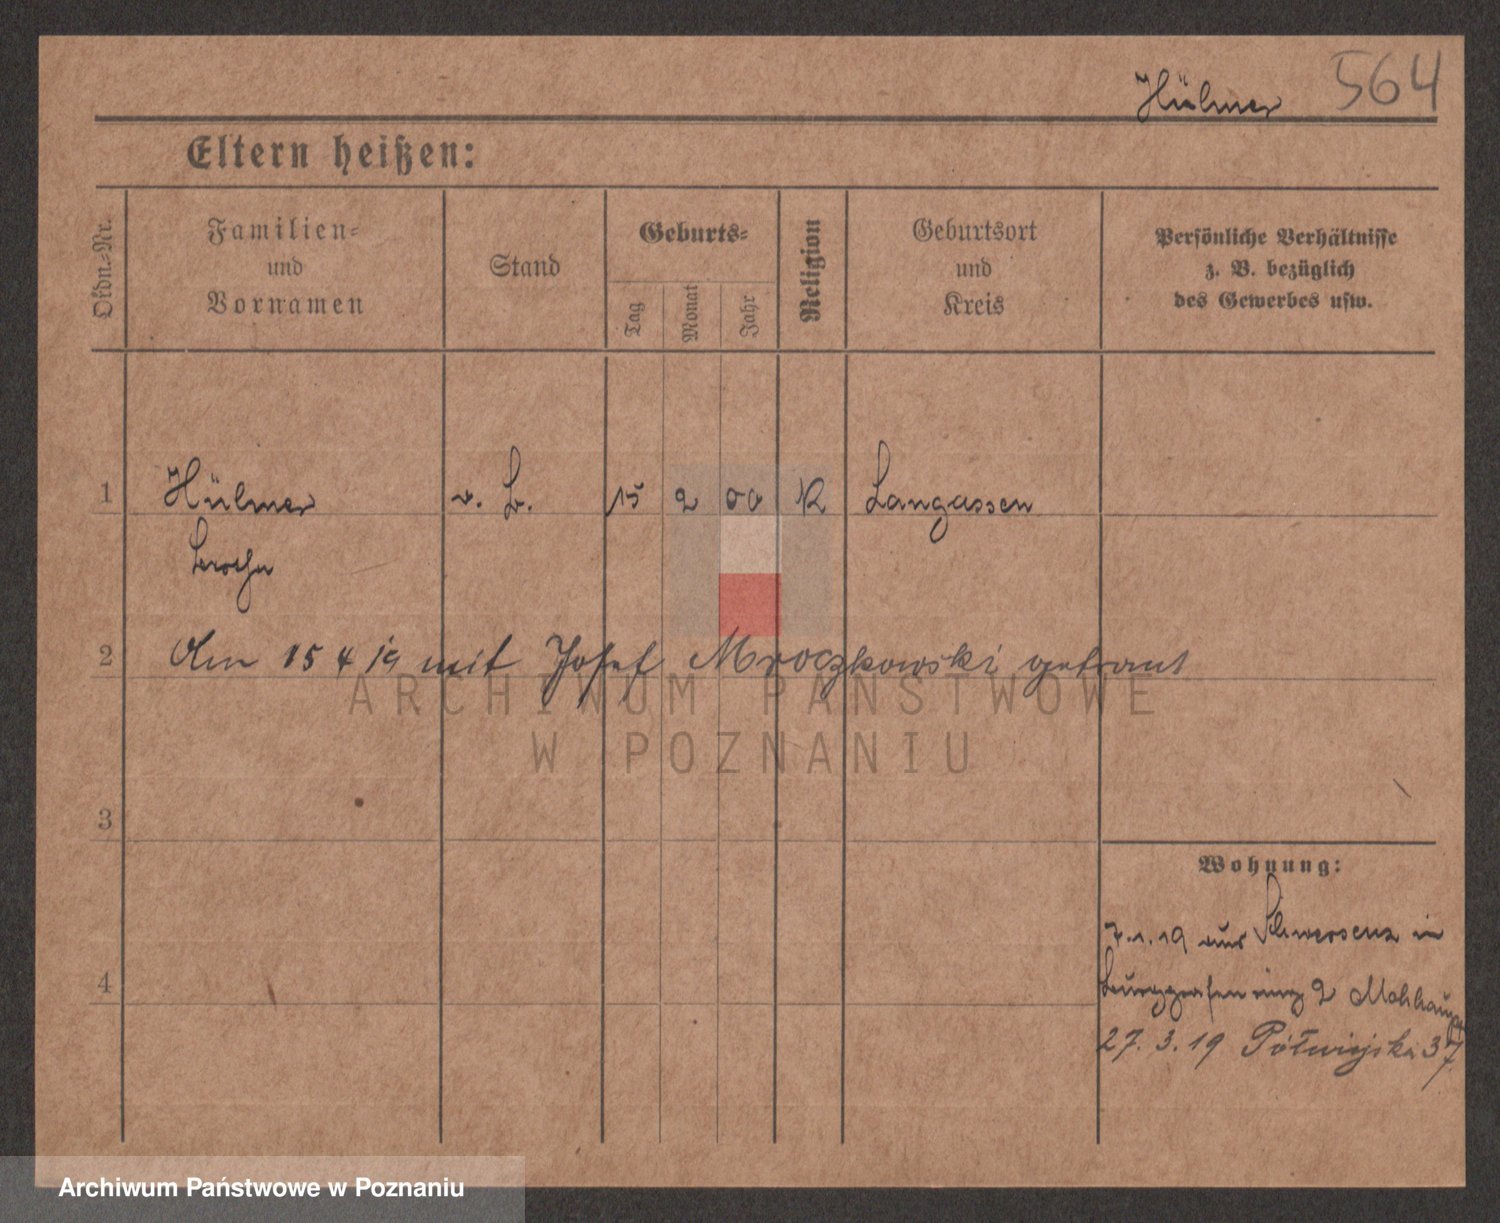 Hülmer 564
Eltern heißen:
Ordn.-Nr.
Familien-
und
Vornamen
Stand
Geburts-
Tag
Monat
Jahr
Religion
Geburtsort
und
Kreis
Persönliche Verhältnisse
z. B. bezüglich
des Gewerbes usw.
1 Hülmer 15 2 00 K Langassen
2 Am 15 4 19 mit Josef Mroczkowski getraut
ARCHIWUM PAŃSTWOWE
W POZNANIU
3
Wohnung:
7.1.19 aus Schwersenz in
4 Burggrafenring 2
27.3.19 Półwiejska 37
Archiwum Państwowe w Poznaniu